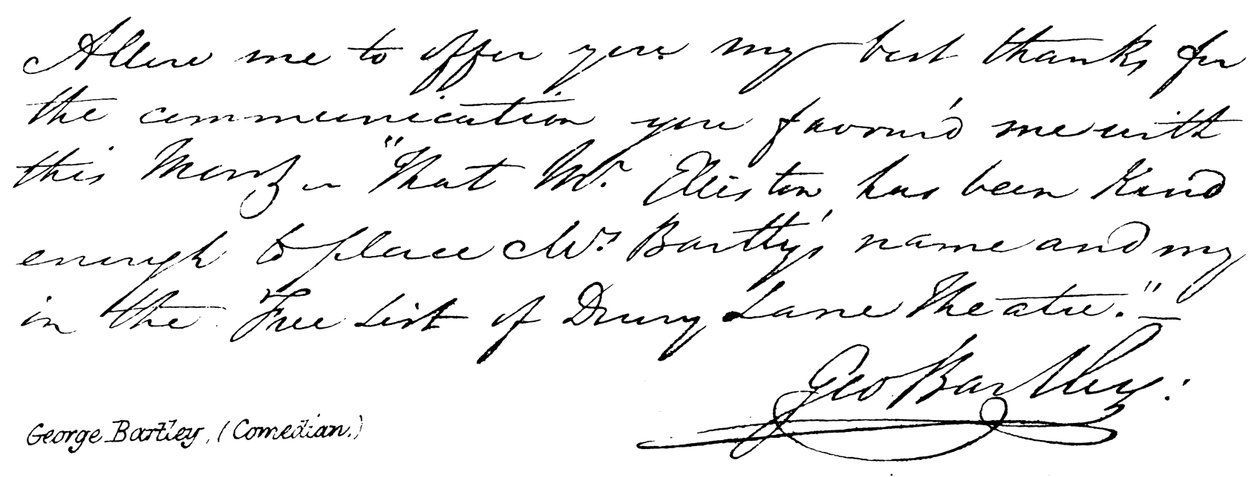 Allow me to offer you my best thanks for
the communication you favour'd me with
this Morng - "That Mr. Elliston has been Kind
enough to place Mrs Bartley's name and my
in the Free List of Drury Lane Theatre." -
Geo Bartley:
George Bartley, (Comedian.)